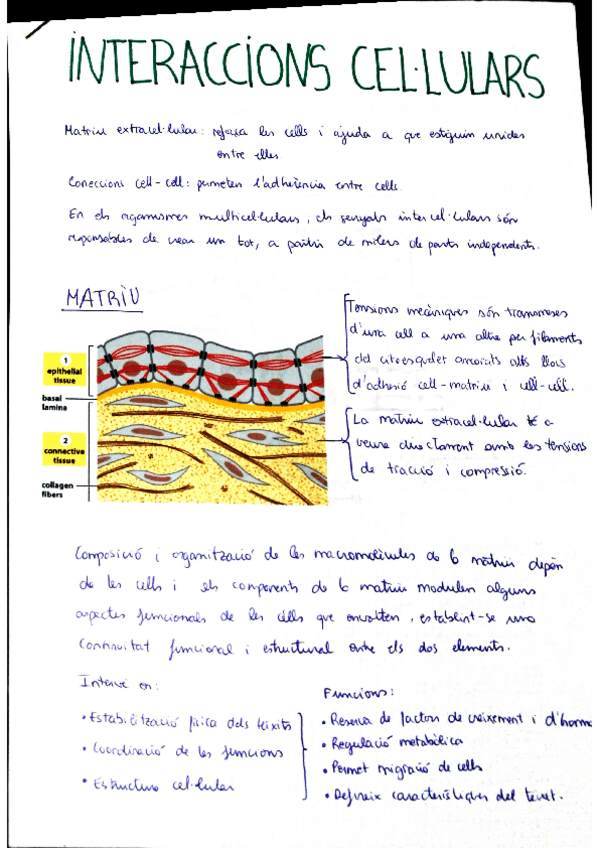 INTERACCIONS CEL·LULARS
Matriu extracel·lular: reforça les cells i ajuda a que estiguin unides
entre elles.
Coneccions cell-cell: permeten l'adherència entre cells.
En els organismes multicel·lulars, els senyals intercel·lulars són
responsables de crear un tot, a partir de milers de parts independents.
MATRIU
Tensions mecàniques són transmeses
d'una cell a una altre per filaments
del citoesquelet ancorats als llocs
d'adhesió cell-matriu i cell-cell.
1
epithelial
tissue
basal
lamina
2
connective
tissue
collagen
fibers
La matriu extracel·lular té a
veure directament amb les tensions
de tracció i compressió.
Composició i organització de les macromolècules de la matriu depèn
de les cells i els components de la matriu modulen alguns
aspectes funcionals de les cells que envolten, establint-se una
continuitat funcional i estructural entre els dos elements.
Intervé en:
• Estabilització física dels teixits
• Coordinació de les funcions
• Estructura cel·lular
Funcions:
• Reserva de factors de creixement i d'hormo
• Regulació metabòlica
• Permet migració de cells
• Defineix característiques del teixit.